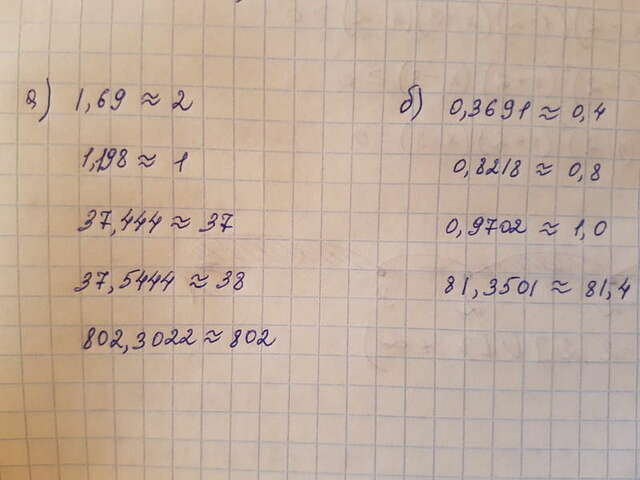 а) 1,69 ≈ 2
1,198 ≈ 1
37,444 ≈ 37
37,5444 ≈ 38
802,3022 ≈ 802
б) 0,3691 ≈ 0,4
0,8218 ≈ 0,8
0,9702 ≈ 1,0
81,3501 ≈ 81,4